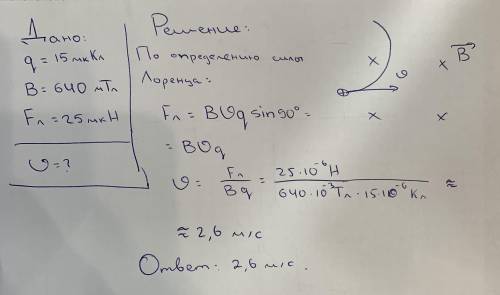 Дано:
q = 15 мкКл
B = 640 мТл
Fл = 25 мкН
υ = ?
Решение:
По определению силы
Лоренца:
Fл = Bυq sin90° =
= Bυq
υ = Fл / Bq = 25·10⁻⁶Н / 640·10⁻³Тл·15·10⁻⁶Кл ≈
≈ 2,6 м/с
Ответ: 2,6 м/с.
× × B⃗
⊕ υ
× ×